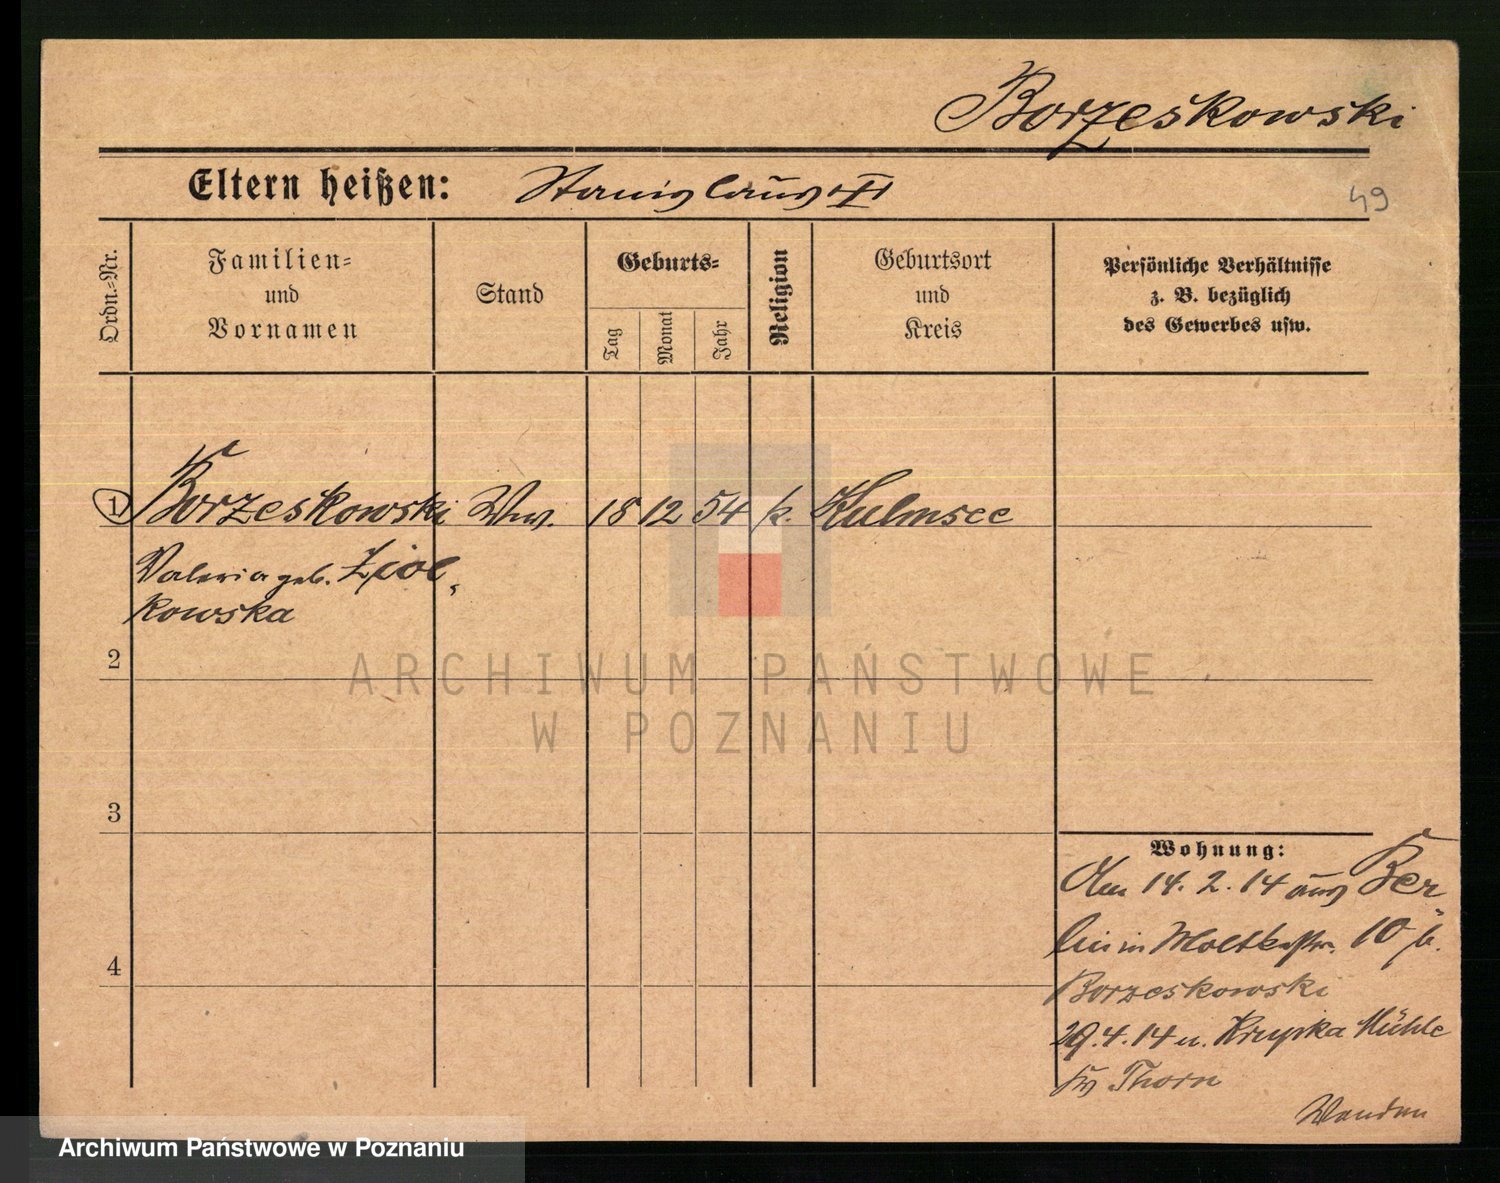 Borzeskowski
Eltern heißen: Stanislaus
49
Ordn.=Nr.
Familien=
und
Vornamen
Stand
Geburts=
Tag
Monat
Jahr
Religion
Geburtsort
und
Kreis
Persönliche Verhältnisse
z. B. bezüglich
des Gewerbes usw.
1 Borzeskowski Ww. 18 12 54 k. Kulmsee
Valeria geb. Ziol-
kowska
2
ARCHIWUM PAŃSTWOWE
W POZNANIU
3
Wohnung:
Am 14.2.14 aus Ber-
lin in Moltkestr. 10 b.
Borzeskowski
29.4.14 n. Krupka Mühle
Kr. Thorn
4
Archiwum Państwowe w Poznaniu